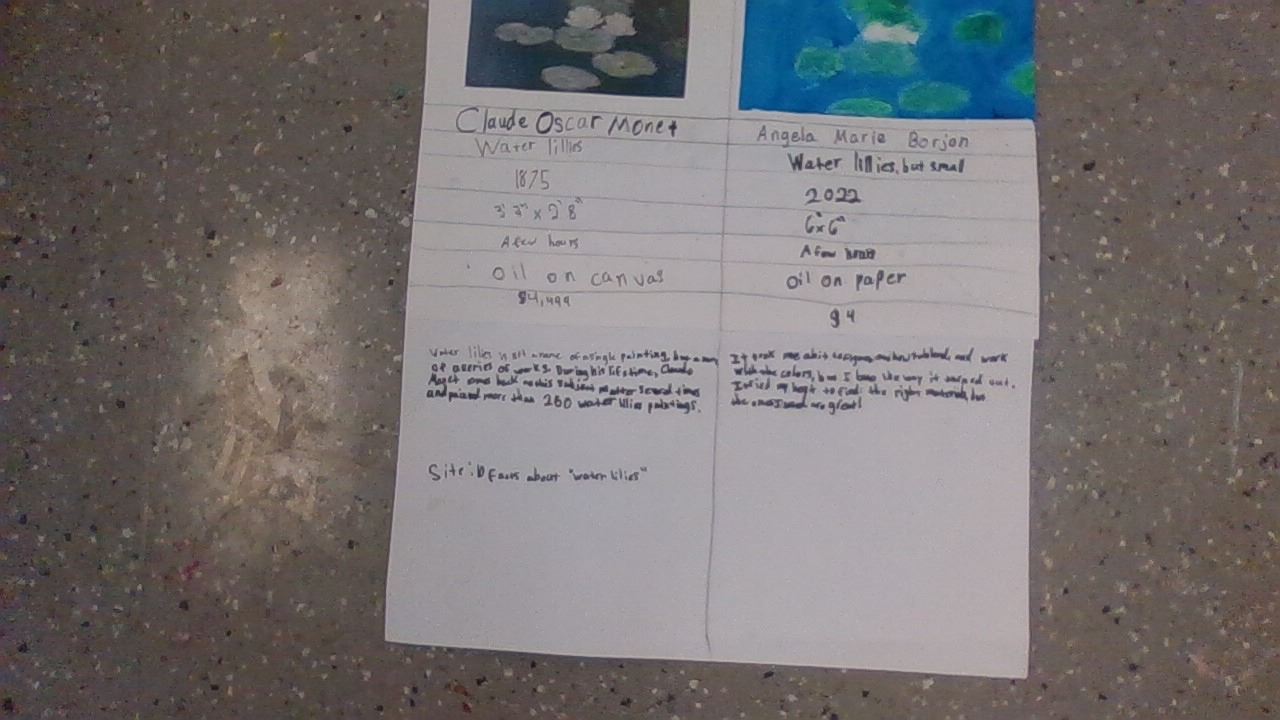 Claude Oscar Monet
Water lillies
1875
3' 3" x 2' 8"
A few hours
Oil on canvas
$4,499
Water lilies is not a name of a single painting, but a name
of a series of works. During his lifetime, Claude
Monet came back to this subject matter several times
and painted more than 250 water lilies paintings.
Site: 10 Facts about "water lilies"
Angela Marie Borjon
Water lillies, but small
2022
6"x6"
A few hours
oil on paper
$4
It took me a bit to and how to blend, and work
with the colors, but I love the way it turned out.
I tried my best to find the right materials, but
the ones I used are great!